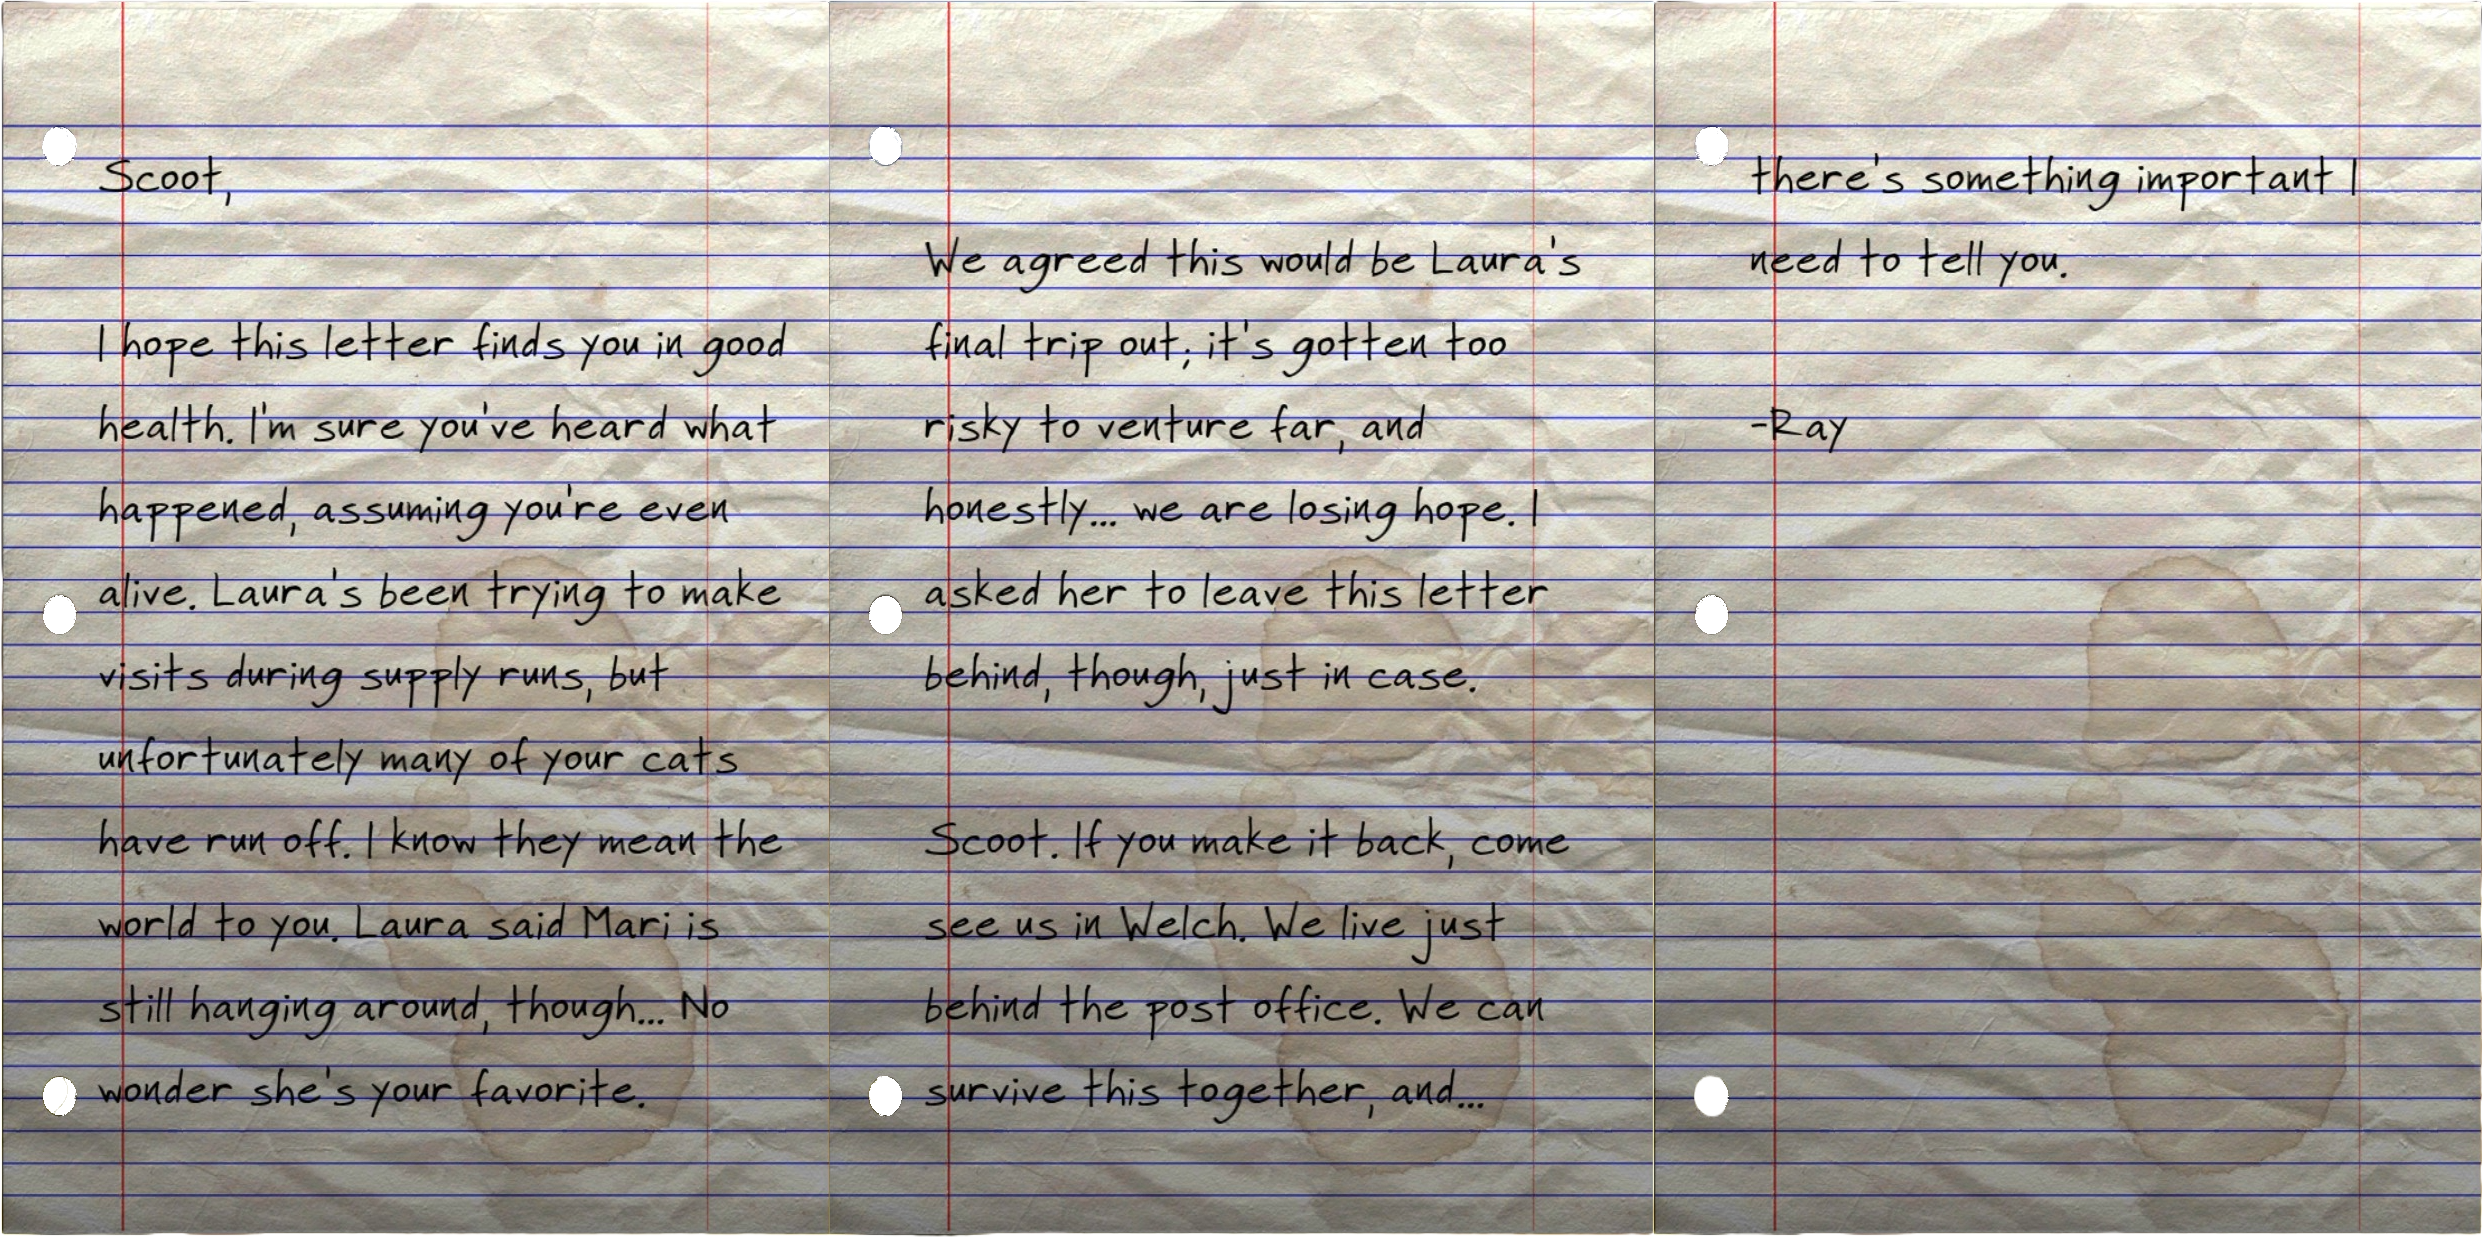 Scoot,
I hope this letter finds you in good
health. I'm sure you've heard what
happened, assuming you're even
alive. Laura's been trying to make
visits during supply runs, but
unfortunately many of your cats
have run off. I know they mean the
world to you. Laura said Mari is
still hanging around, though... No
wonder she's your favorite.
We agreed this would be Laura's
final trip out; it's gotten too
risky to venture far, and
honestly... we are losing hope. I
asked her to leave this letter
behind, though, just in case.
Scoot. If you make it back, come
see us in Welch. We live just
behind the post office. We can
survive this together, and...
there's something important I
need to tell you.
-Ray